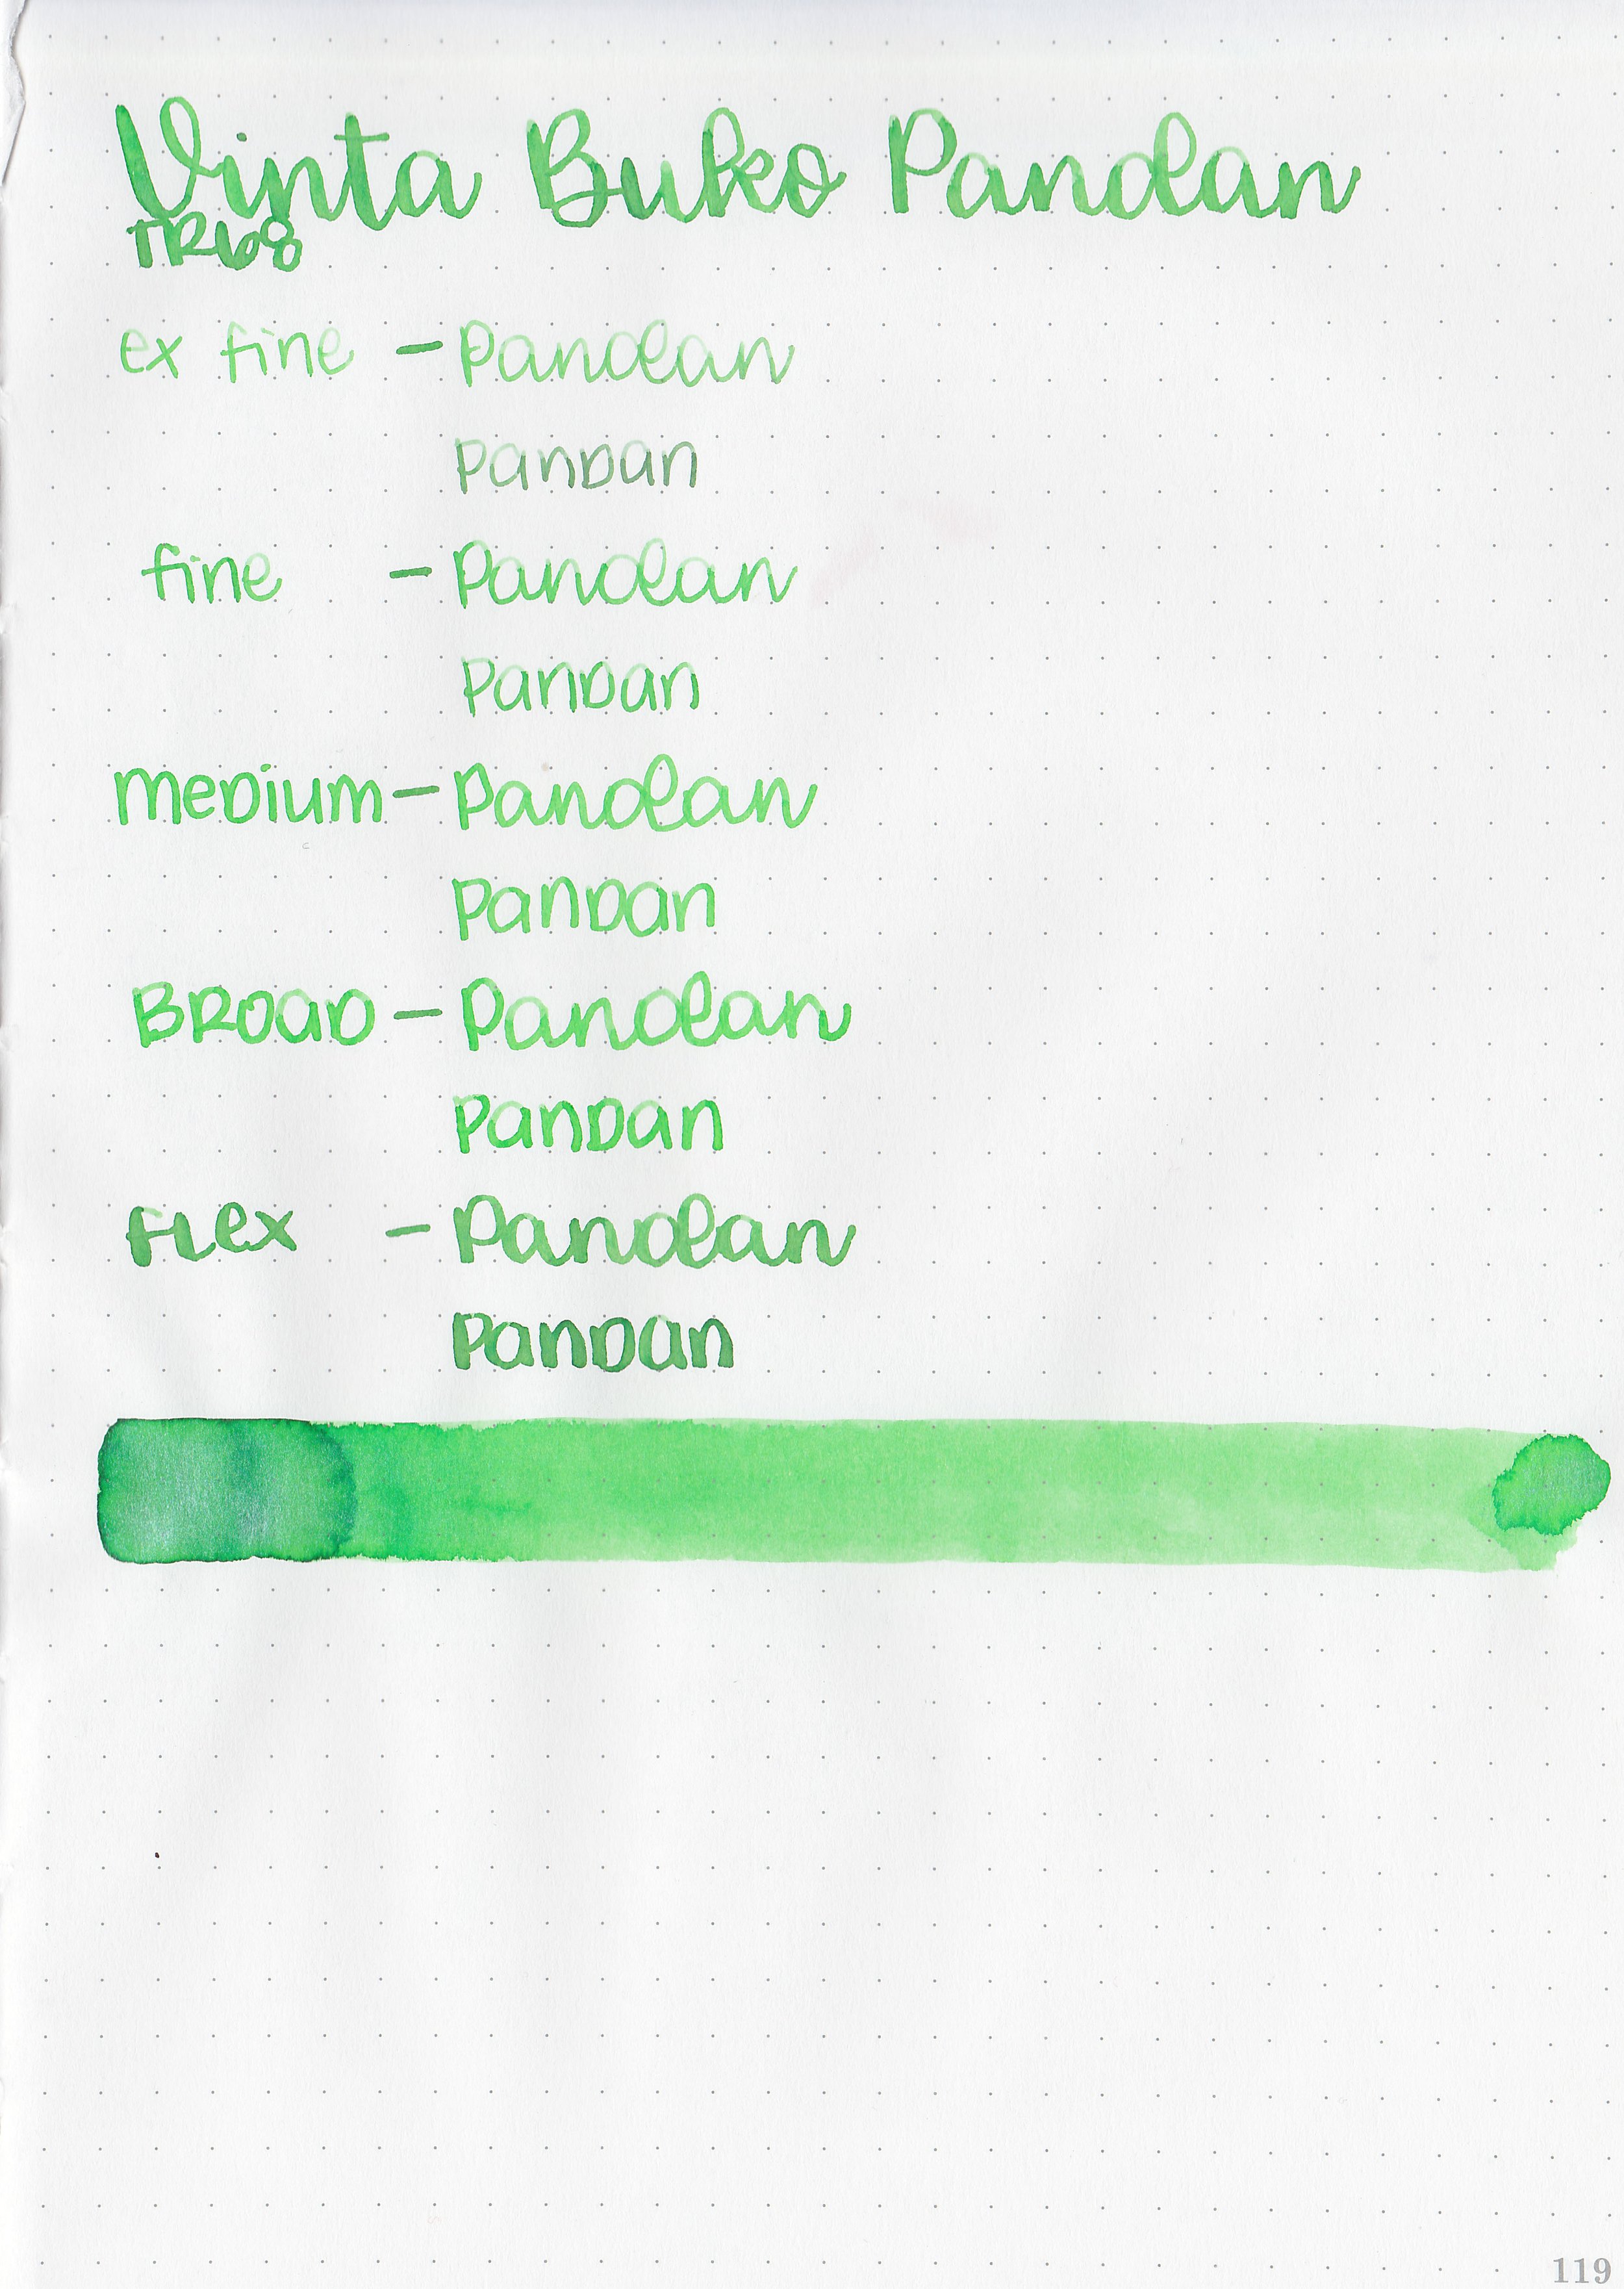 Vinta Buko Pandan
TR68
ex fine - Pandan
Pandan
fine - Pandan
Pandan
medium - Pandan
Pandan
Broad - Pandan
Pandan
Flex - Pandan
Pandan
119